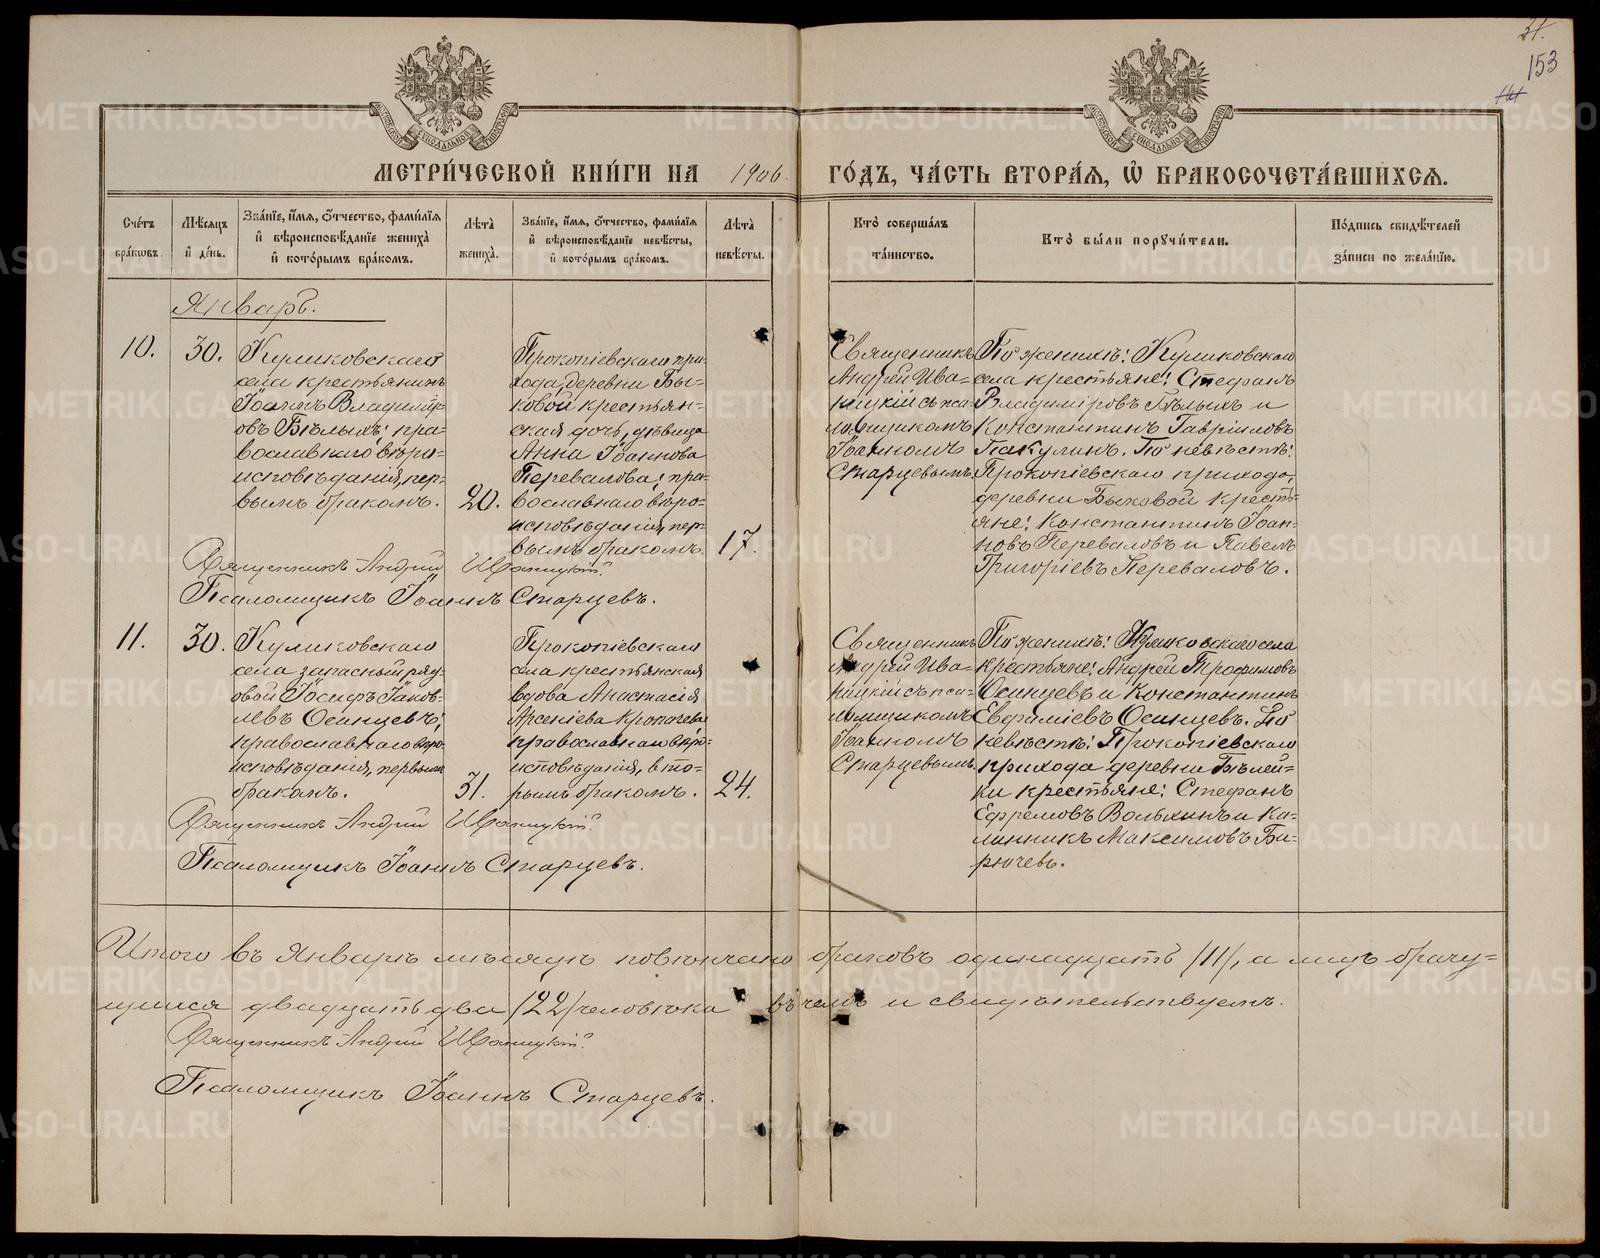 31.
153
МЕТРИ́ЧЕСКОЙ КНИ́ГИ НА 1906. ГО́ДЪ, ЧА́СТЬ ВТОРА́Я, Ѿ БРАКОСОЧЕТА́ВШИХСЯ.
Сче́тъ бра́ковъ.
Мѣ́сяцъ и҆ де́нь.
Зва́нїе, и҆́мя, ѻ҆́тчество, фами́лїя
и҆ вѣроисповѣ́данїе жениха̀
и҆ кото́рымъ бра́комъ.
Лѣ́та жениха̀.
Зва́нїе, и҆́мя, ѻ҆́тчество, фами́лїя
и҆ вѣроисповѣ́данїе невѣ́сты,
и҆ кото́рымъ бра́комъ.
Лѣ́та невѣ́сты.
Кто̀ соверша́лъ та́инство.
Кто̀ бы́ли порꙋчи́тели.
По́дпись свидѣ́телей за́писи по жела́нїю.
Январь.
10.
30.
Куликовскаго
села крестьянинъ
Іоаннъ Владимір-
овъ Бѣлыхъ; пра-
вославнаго вѣро-
исповѣданія, пер-
вымъ бракомъ.
20.
Прокопіевскаго при-
хода, деревни Бы-
ковой крестьян-
ская дочь, дѣвица
Анна Іоаннова
Перевалова; пра-
вославнаго вѣро-
исповѣданія, пер-
вымъ бракомъ.
17.
Священникъ
Андрей Ива-
ницкій съ пса-
ломщикомъ
Іоанномъ
Старцевымъ.
По женихѣ: Куликовскаго
села крестьяне: Стефанъ
Владиміровъ Бѣлыхъ и
Константинъ Гавріиловъ
Пакулинъ. По невѣстѣ:
Прокопіевскаго прихода,
деревни Быковой кресть-
яне: Константинъ Іоан-
новъ Переваловъ и Павелъ
Григоріевъ Переваловъ.
Священникъ Андрей Иваницкій
Псаломщикъ Іоаннъ Старцевъ.
11.
30.
Куликовскаго
села запасный ряд-
овой Іосифъ Іаков-
левъ Осинцевъ;
православнаго вѣро-
исповѣданія, первымъ
бракомъ.
31.
Прокопіевскаго
села крестьянская
вдова Анастасія
Арсеніева Кропачева
православнаго вѣро-
исповѣданія, вто-
рымъ бракомъ.
24.
Священникъ
Андрей Ива-
ницкій съ пса-
ломщикомъ
Іоанномъ
Старцевымъ.
По женихѣ: Куликовскаго села
крестьяне: Андрей Трофимовъ
Осинцевъ и Константинъ
Евфиміевъ Осинцевъ. По
невѣстѣ: Прокопіевскаго
прихода деревни Бѣлей-
ки крестьяне: Стефанъ
Ефремовъ Волынкинъ и Ка-
линникъ Максимовъ Би-
рючевъ.
Священникъ Андрей Иваницкій
Псаломщикъ Іоаннъ Старцевъ.
Итого въ Январѣ мѣсяцѣ повѣнчано браковъ одинадцать /11/, а лицъ брачу-
щихся двадцать два /22/ человѣка въ чемъ и свидѣтельствуемъ.
Священникъ Андрей Иваницкій
Псаломщикъ Іоаннъ Старцевъ.
METRIKI.GASO-URAL.RU